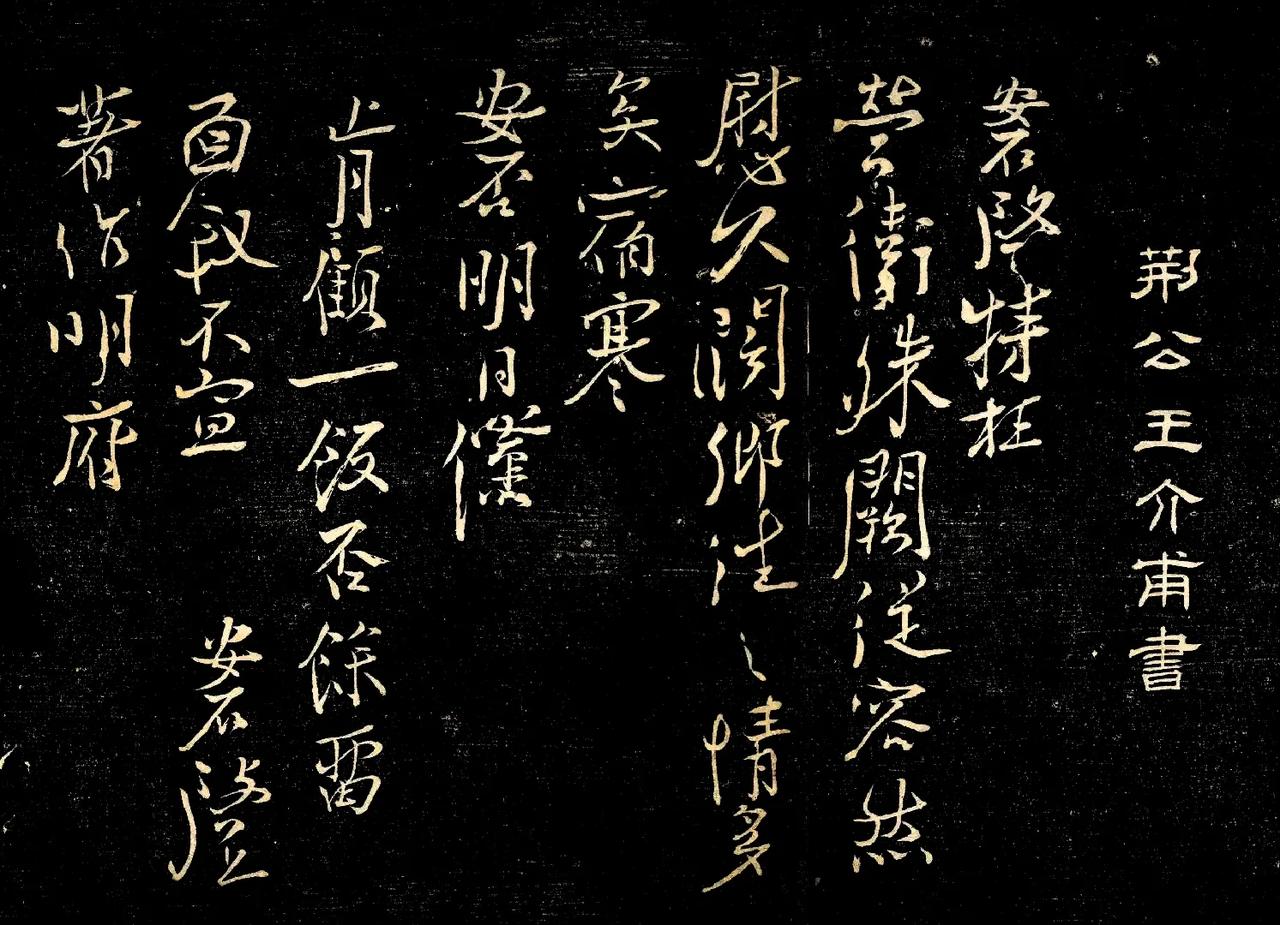 荆公王介甫書
安石啓特枉
營衛殊闕從容然
慰久闊鄉往之情多
矣宿寒
安否明日儻
肯顧一飯否餘畱
面敘不宣 安石啓
著作明府